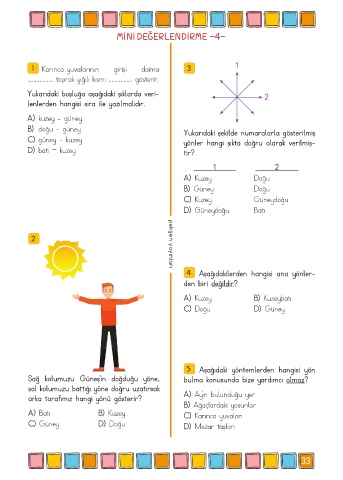 MİNİ DEĞERLENDİRME -4-
1 Karınca yuvalarının girişi daima
.............. toprak yığılı kısmı .............. gösterir.
Yukarıdaki boşluğa aşağıdaki şıklarda veri-
lenlerden hangisi sıra ile yazılmalıdır.
A) kuzey - güney
B) doğu - güney
C) güney - kuzey
D) batı - kuzey
2
Sağ kolumuzu Güneşin doğduğu yöne,
sol kolumuzu battığı yöne doğru uzatırsak
arka tarafımız hangi yönü gösterir?
A) Batı B) Kuzey
C) Güney D) Doğu
pelikan yayınları
3
1
2
Yukarıdaki şekilde numaralarla gösterilmiş
yönler hangi şıkta doğru olarak verilmiş-
tir?
1 2
A) Kuzey Doğu
B) Güney Doğu
C) Kuzey Güneydoğu
D) Güneydoğu Batı
4 Aşağıdakilerden hangisi ana yönler-
den biri değildir?
A) Kuzey B) Kuzeybatı
C) Doğu D) Güney
5 Aşağıdaki yöntemlerden hangisi yön
bulma konusunda bize yardımcı olmaz?
A) Ay'ın bulunduğu yer
B) Ağaçlardaki yosunlar
C) Karınca yuvaları
D) Mezar taşları
33